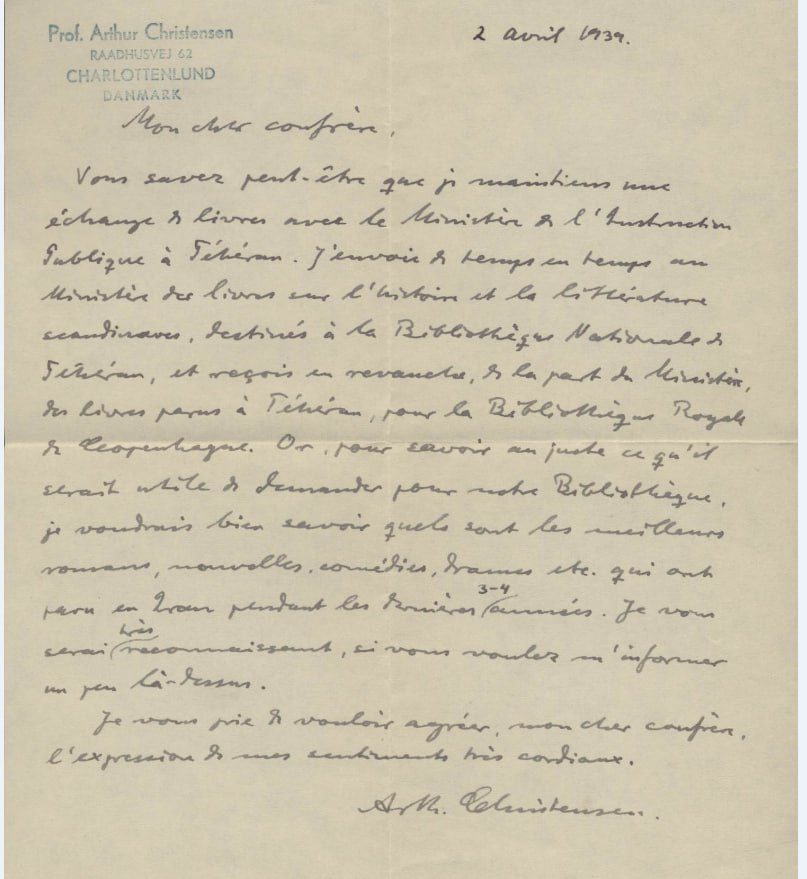 Prof. Arthur Christensen
RAADHUSVEJ 62
CHARLOTTENLUND
DANMARK
2 avril 1939.
Mon cher confrère,
Vous savez peut-être que je maintiens une
échange de livres avec le Ministère de l'Instruction
Publique à Téhéran. J'envoie de temps en temps au
Ministère des livres sur l'histoire et la littérature
scandinaves, destinés à la Bibliothèque Nationale de
Téhéran, et reçois en revanche, de la part du Ministère,
des livres parus à Téhéran, pour la Bibliothèque Royale
de Copenhague. Or, pour savoir au juste ce qu'il
serait utile de demander pour notre Bibliothèque,
je voudrais bien savoir quels sont les meilleurs
romans, nouvelles, comédies, drames etc. qui ont
paru en Iran pendant les dernières 3-4 années. Je vous
serai très reconnaissant, si vous voulez m'informer
un peu là-dessus.
Je vous prie de vouloir agréer, mon cher confrère,
l'expression de mes sentiments très cordiaux.
Arth. Christensen.